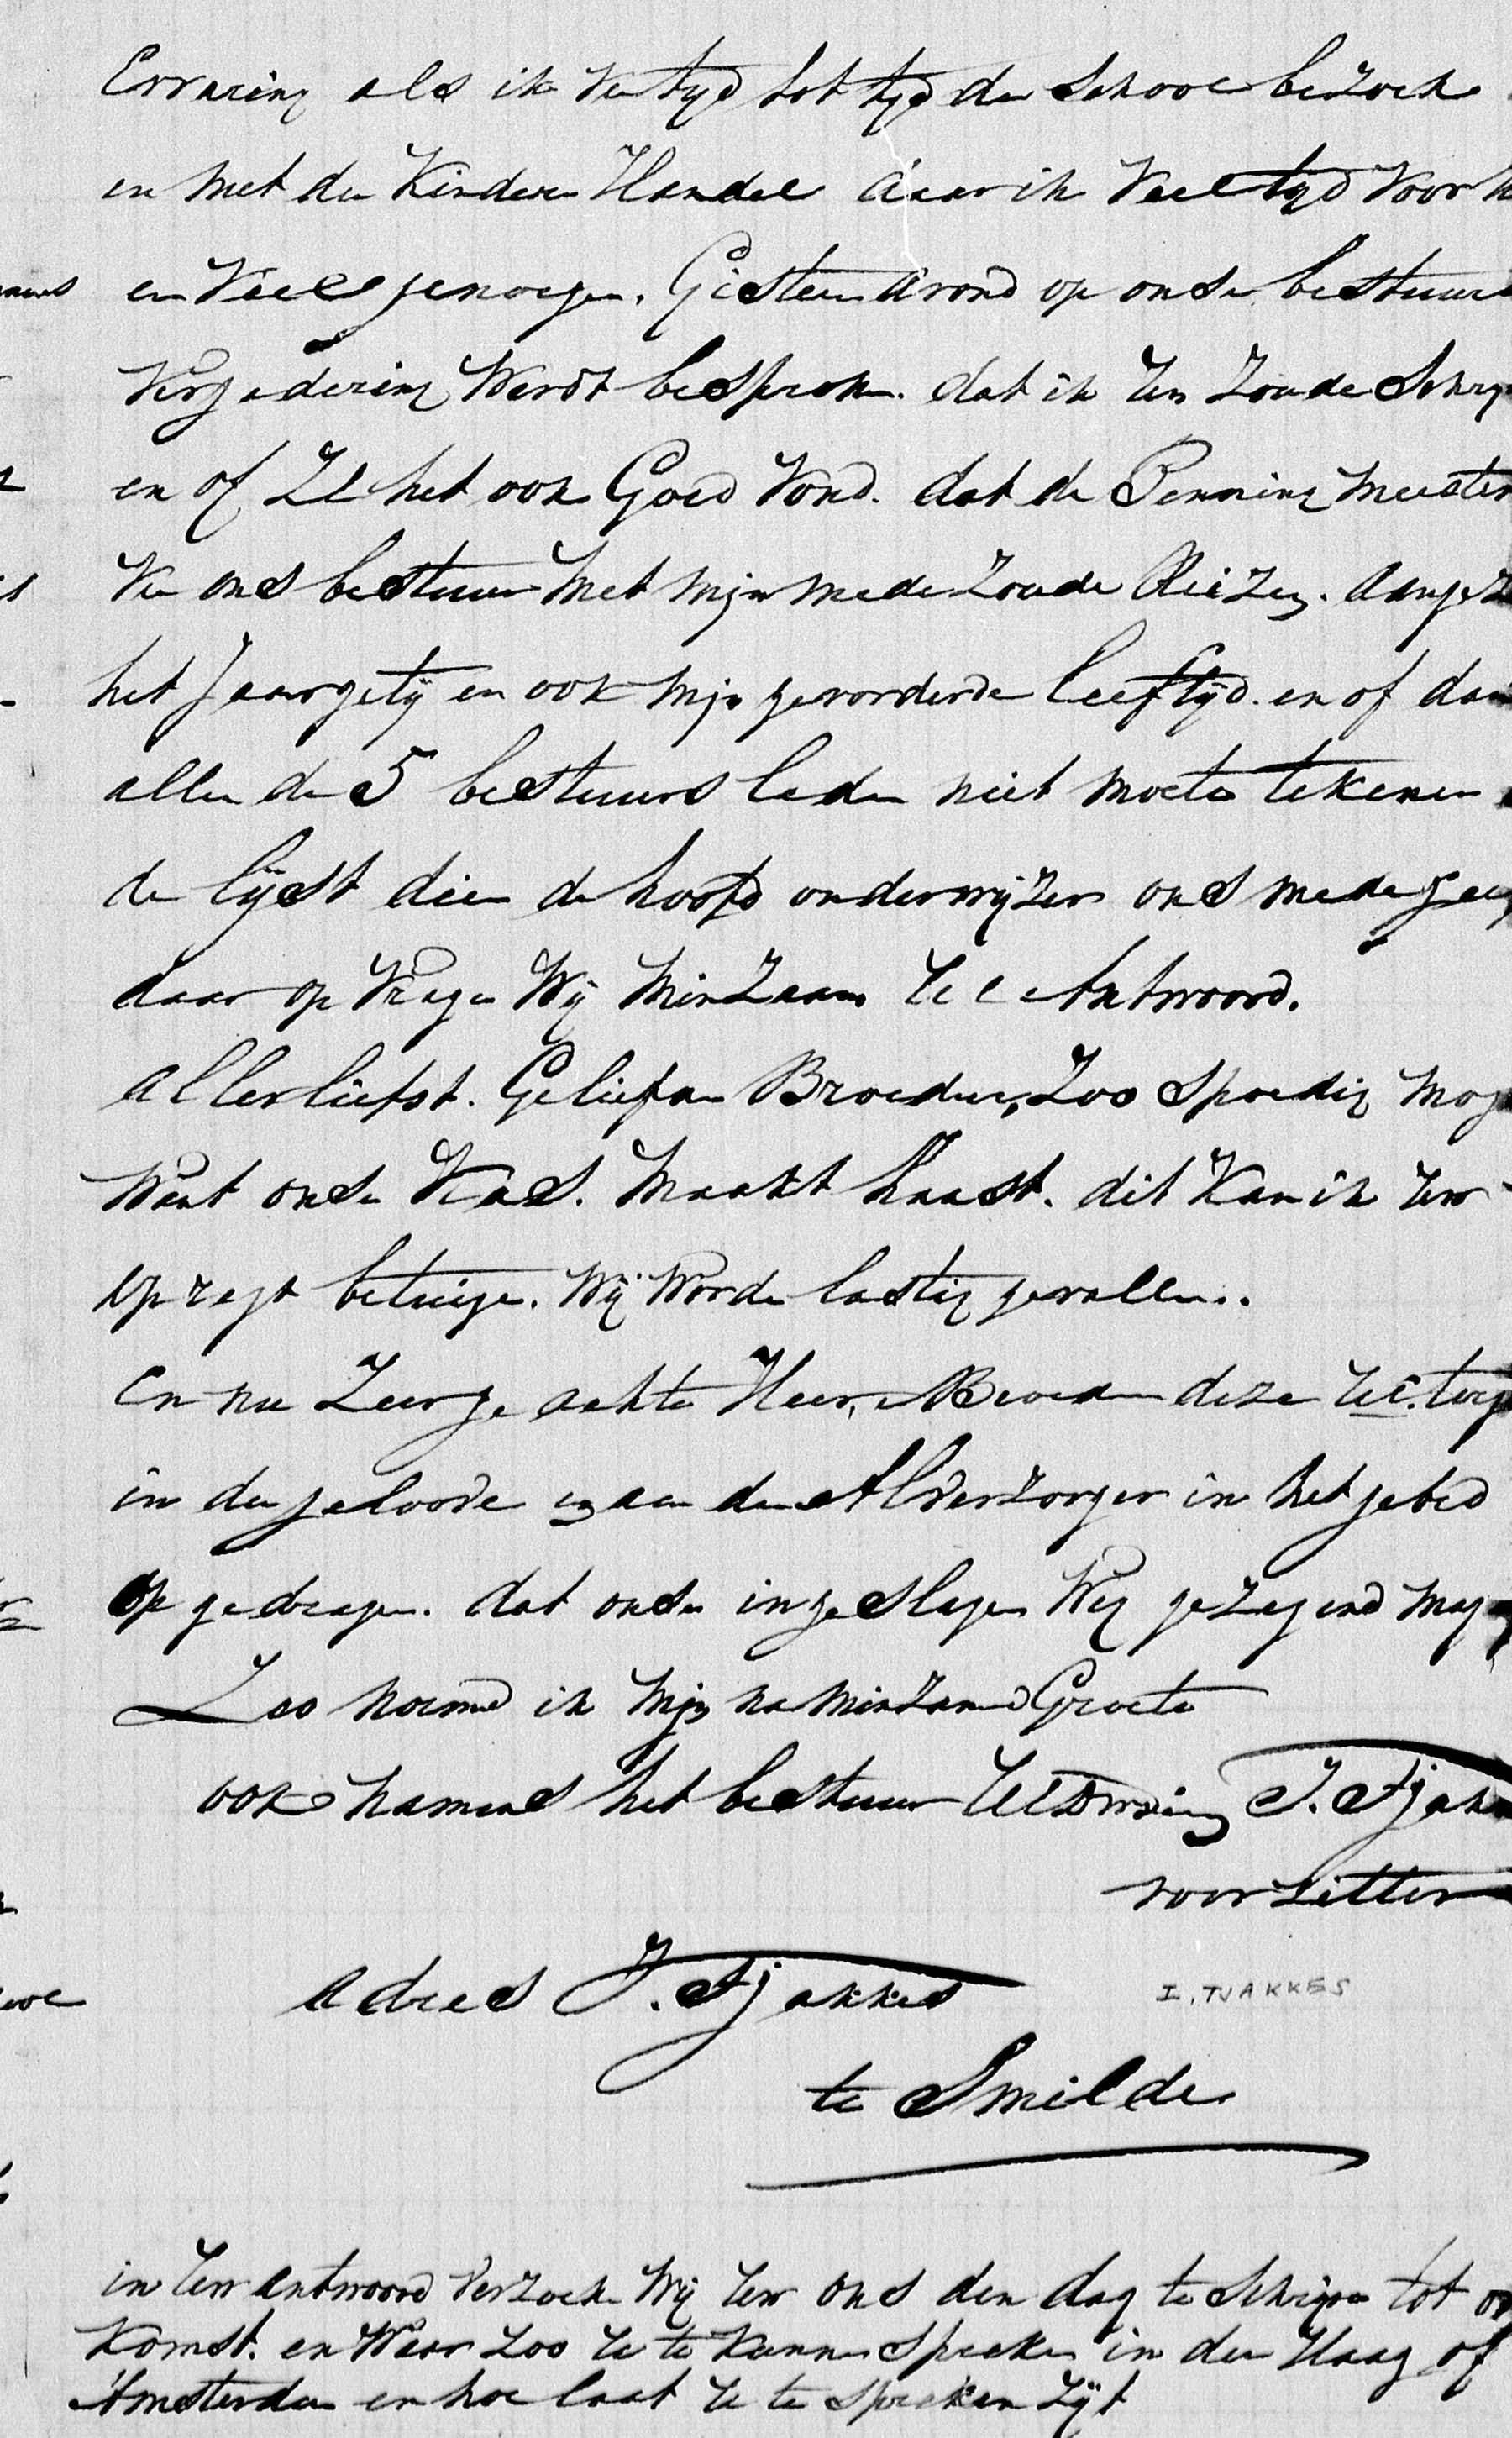 Ervaring als ik van tyd tot tyd de School bezoek
en met de Kindere Handel daar ik Veel tyd Voor h
en Veel genoegen. Gisteren Avond op onse bestuur
Vergadering Werdt besproken. dat ik Uw Zoude Schryv
en of UE het ook Goed Vond. dat de Penning Meester
Van ons bestuur Met mijn mede Zoude Reizen. Aangez
het Jaargetij en ook Mijn gevorderde leeftijd. en of dan
allen de 5 bestuurs leden niet moeten tekenen
de lijst dien de hoofd onderwijzer ons mede geef
daar op Vragen Wij MinZaam UE Antwoord.
allerliefst. Geliefde Broeder, Zoo Spoedig Mog
Want onse Kas. Maakt haast. dit Kan ik Uw
op regt betuige. Wij Worde lastig gevallen.
en nu Zeer ge achte Heer, Broeder deze UE. terg
in de geloove en aan de Alverzorger in het gebed
op gedragen. dat onse inge slagen Weg gezegend mag
Zoo noemd ik Mijn na minzame Groete
ook namens het bestuur UEDwnaar J. Tjak
voorzitter
adres J. Tjakkes
I. TJAKKES
te Smilde
in Uw Antwoord Verzoeke Wij Uw ons den dag te Schrijven tot on
Komst. en Waar Zoo UE te Kunnen Spreeken in den Haag of
Amsterdam en hoe laat UE te Spreeken Zijt